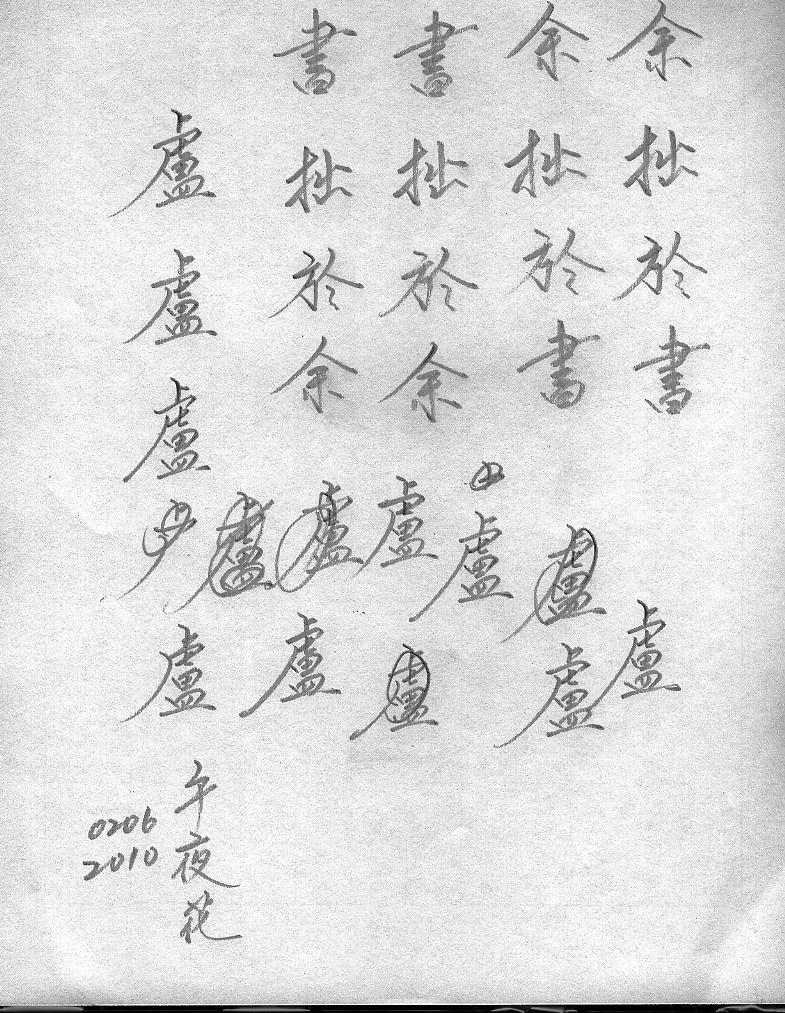 余拙於書
余拙於書
書拙於余
書拙於余
盧
盧
盧
盧
盧
盧
盧
盧
盧
盧
盧
盧
盧
午夜花
0206
2010